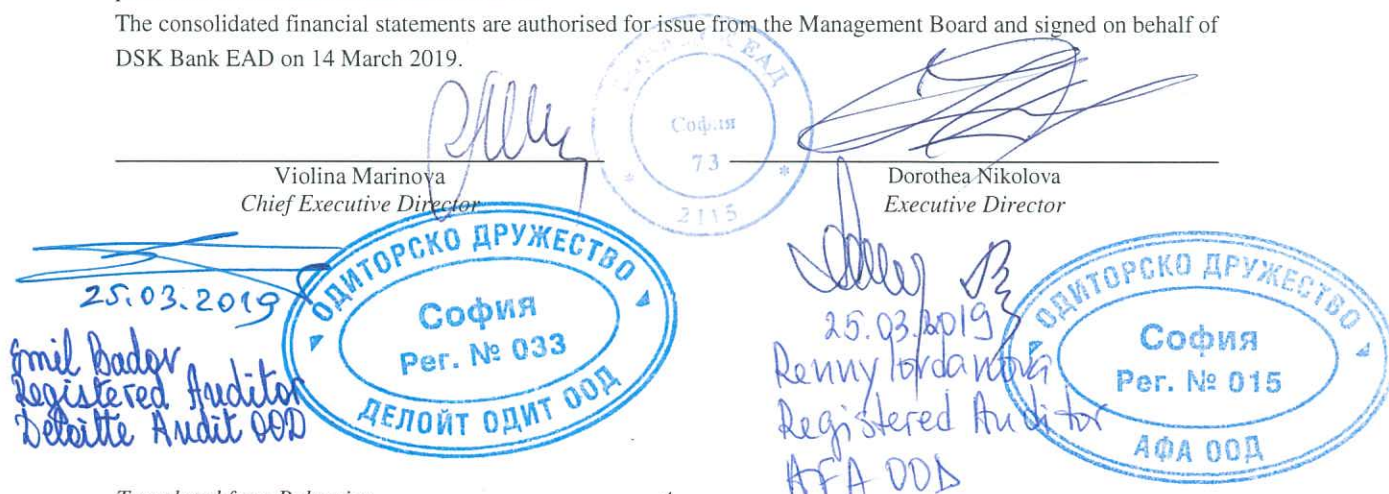 The consolidated financial statements are authorised for issue from the Management Board and signed on behalf of
DSK Bank EAD on 14 March 2019.
ЕАД
София
73
2115
Violina Marinova
Chief Executive Director
Dorothea Nikolova
Executive Director
25.03.2019
Emil Badov
Registered Auditor
Deloitte Audit OOD
ОДИТОРСКО ДРУЖЕСТВО
София
Рег. № 033
ДЕЛОЙТ ОДИТ ООД
25.03.2019
Renny Iordanova
Registered Auditor
AFA OOD
ОДИТОРСКО ДРУЖЕСТВО
София
Рег. № 015
АФА ООД